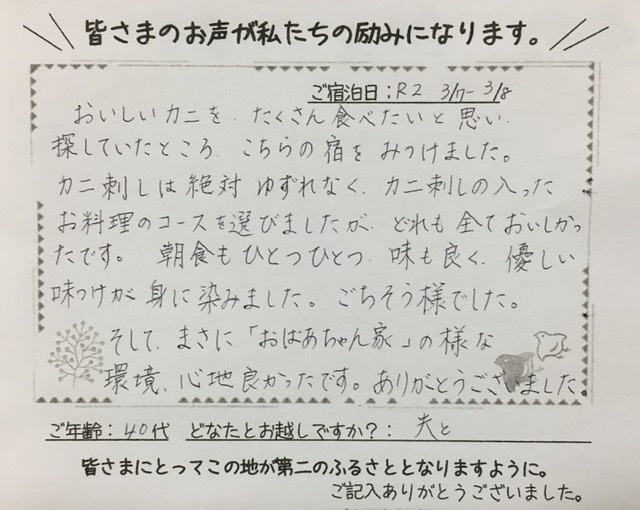 皆さまのお声が私たちの励みになります。
ご宿泊日：R2 3/7- 3/8
おいしいカニを、たくさん食べたいと思い、
探していたところ、こちらの宿をみつけました。
カニ刺しは絶対ゆずれなく、カニ刺しの入った
お料理のコースを選びましたが、どれも全ておいしかっ
たです。 朝食もひとつひとつ、味も良く、優しい
味つけが身に染みました。ごちそう様でした。
そして、まさに「おばあちゃん家」の様な
環境、心地良かったです。ありがとうございました。
ご年齢：40代 どなたとお越しですか？：夫と
皆さまにとってこの地が第二のふるさととなりますように。
ご記入ありがとうございました。